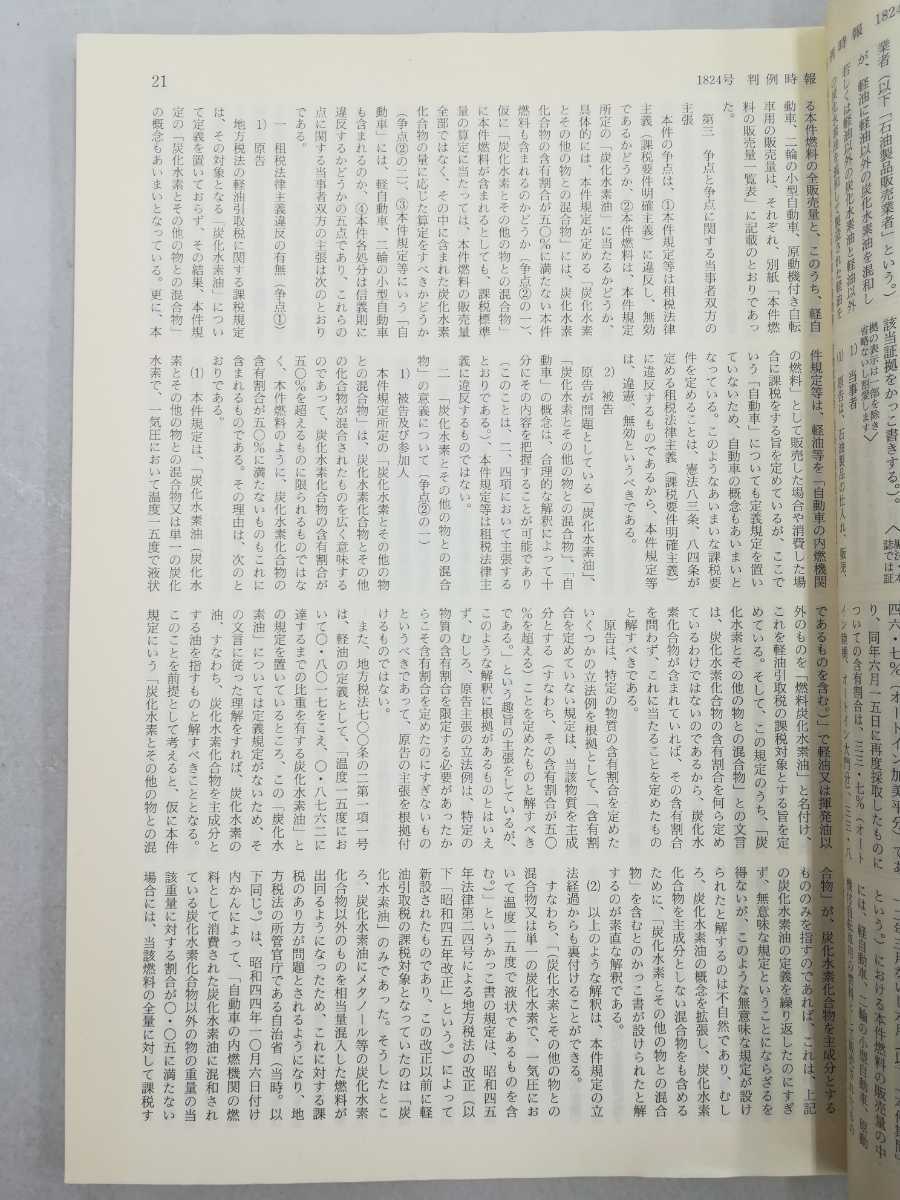 21
1824号 判例時報
る本件燃料の全販売量と、このうち、軽自
動車、二輪の小型自動車、原動機付き自転
車用の販売量は、それぞれ、別紙「本件燃
料の販売量一覧表」に記載のとおりであっ
た。
第三 争点と争点に関する当事者双方の
主張
本件の争点は、①本件規定等は租税法律
主義(課税要件明確主義)に違反し、無効
であるかどうか、②本件燃料は、本件規定
所定の「炭化水素油」に当たるかどうか、
具体的には、本件規定が定める「炭化水素
とその他の物との混合物」には、炭化水素
化合物の含有割合が五〇%に満たない本件
燃料も含まれるのかどうか(争点②の一)、
仮に「炭化水素とその他の物との混合物」
に本件燃料が含まれるとしても、課税標準
量の算定に当たっては、本件燃料の販売量
全部ではなく、その中に含まれた炭化水素
化合物の量に応じた算定をすべきかどうか
(争点②の二)、③本件規定等にいう「自
動車」には、軽自動車、二輪の小型自動車
も含まれるのか、④本件各処分は信義則に
違反するかどうかの五点であり、これらの
点に関する当事者双方の主張は次のとおり
である。
一 租税法律主義違反の有無(争点①)
1) 原告
地方税法の軽油引取税に関する課税規定
は、その対象となる「炭化水素油」につい
て定義を置いておらず、その結果、本件規
定の「炭化水素とその他の物との混合物」
の概念もあいまいとなっている。更に、本
件規定等は、軽油等を「自動車の内燃機関
の燃料」として販売した場合や消費した場
合に課税をする旨を定めているが、ここで
いう「自動車」についても定義規定を置い
ていないため、自動車の概念もあいまいと
なっている。このようなあいまいな課税要
件を定めることは、憲法八三条、八四条が
定める租税法律主義(課税要件明確主義)
に違反するものであるから、本件規定等
は、違憲、無効というべきである。
2) 被告
原告が問題としている「炭化水素油」、
「炭化水素とその他の物との混合物」、「自
動車」の概念は、合理的な解釈によって十
分にその内容を把握することが可能であり
(このことは、二、四項において主張する
とおりである。)、本件規定等は租税法律主
義に違反するものではない。
二 「炭化水素とその他の物との混合
物」の意義について(争点②の一)
1) 被告及び参加人
本件規定所定の「炭化水素とその他の物
との混合物」は、炭化水素化合物とその他
の化合物が混合されたものを広く意味する
のであって、炭化水素化合物の含有割合が
五〇%を超えるものに限られるものではな
く、本件燃料のように、炭化水素化合物の
含有割合が五〇%に満たないものもこれに
含まれるものである。その理由は、次のと
おりである。
(1) 本件規定は、「炭化水素油(炭化水
素とその他の物との混合物又は単一の炭化
水素で、一気圧において温度一五度で液状
であるものを含む。)」で軽油又は揮発油以
外のものを「燃料炭化水素油」と名付け、
これを軽油引取税の課税対象とする旨を定
めている。そして、この規定のうち、「炭
化水素とその他の物との混合物」との文言
は、炭化水素化合物の含有割合を何ら定め
ているわけではないのであるから、炭化水
素化合物が含まれていれば、その含有割合
を問わず、これに当たることを定めたもの
と解すべきである。
原告は、特定の物質の含有割合を定めた
いくつかの立法例を根拠として、「含有割
合を定めていない規定は、当該物質を主成
分とする(すなわち、その含有割合が五〇
%を超える)ことを定めたものと解すべき
である。」という趣旨の主張をしているが、
このような解釈に根拠があるものとはいえ
ず、むしろ、原告主張の立法例は、特定の
物質の含有割合を限定する必要があったか
らこそ含有割合を定めたのにすぎないもの
というべきであって、原告の主張を根拠付
けるものではない。
また、地方税法七〇〇条の二第一項一号
は、軽油の定義として、「温度一五度にお
いて〇・八〇一七をこえ、〇・八七六二に
達するまでの比重を有する炭化水素油」と
の規定を置いているところ、この「炭化水
素油」については定義規定がないため、そ
の文言に従った理解をすれば、炭化水素の
油、すなわち、炭化水素化合物を主成分と
する油を指すものと解すべきこととなる。
このことを前提として考えると、仮に本件
規定にいう「炭化水素とその他の物との混
合物」が、炭化水素化合物を主成分とする
もののみを指すのであれば、これは、上記
の炭化水素油の定義を繰り返したのにすぎ
ず、無意味な規定ということにならざるを
得ないが、このような無意味な規定が設け
られたと解するのは不自然であり、むし
ろ、炭化水素油の概念を拡張し、炭化水素
化合物を主成分としない混合物も含める
ために、「炭化水素とその他の物との混合
物」を含むとのかっこ書が設けられたと解
するのが素直な解釈である。
(2) 以上のような解釈は、本件規定の立
法経過からも裏付けることができる。
すなわち、「(炭化水素とその他の物との
混合物又は単一の炭化水素で、一気圧にお
いて温度一五度で液状であるものを含
む。)」というかっこ書の規定は、昭和四五
年法律第二四号による地方税法の改正(以
下「昭和四五年改正」という。)によって
新設されたものであり、この改正以前に軽
油引取税の課税対象となっていたのは「炭
化水素油」のみであった。そうしたとこ
ろ、炭化水素油にメタノール等の炭化水素
化合物以外のものを相当量混入した燃料が
出回るようになったため、これに対する課
税のあり方が問題とされるようになり、地
方税法の所管官庁である自治省(当時。以
下同じ。)は、昭和四四年一〇月六日付け
内かんによって、「自動車の内燃機関の燃
料として消費された炭化水素油に混和され
ている炭化水素化合物以外の物の重量の当
該重量に対する割合が〇・〇五に満たない
場合には、当該燃料の全量に対して課税す
業者(以下「石油製品販売業者」という。)
が、軽油に軽油以外の炭化水素油を混和し
該当証拠をかっこ書きする。)。
拠の表示は一部を除き
省略ないし割愛します〉
1) 当事者
り、同年六月一五日に再度採取したものに
ついての含有割合は、三三・七%(オート
という。)における本件燃料の販売量の中
には、軽自動車、二輪の小型自動車、原動